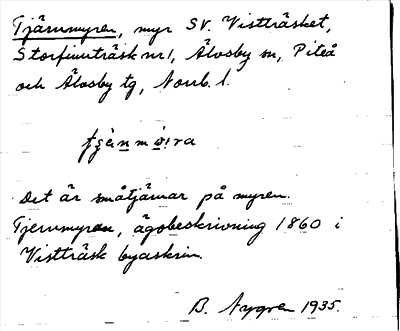 Tjärnmyren, myr SV. Vistträsket,
Storfinnträsk nr 1, Älvsby sn, Piteå
och Älvsby tg, Norrb. l.
Det är småtjärnar på myren.
Tjernmyren, ägobeskrivning 1860 i
Vistträsk byaskrin.
B. Nygren 1935.